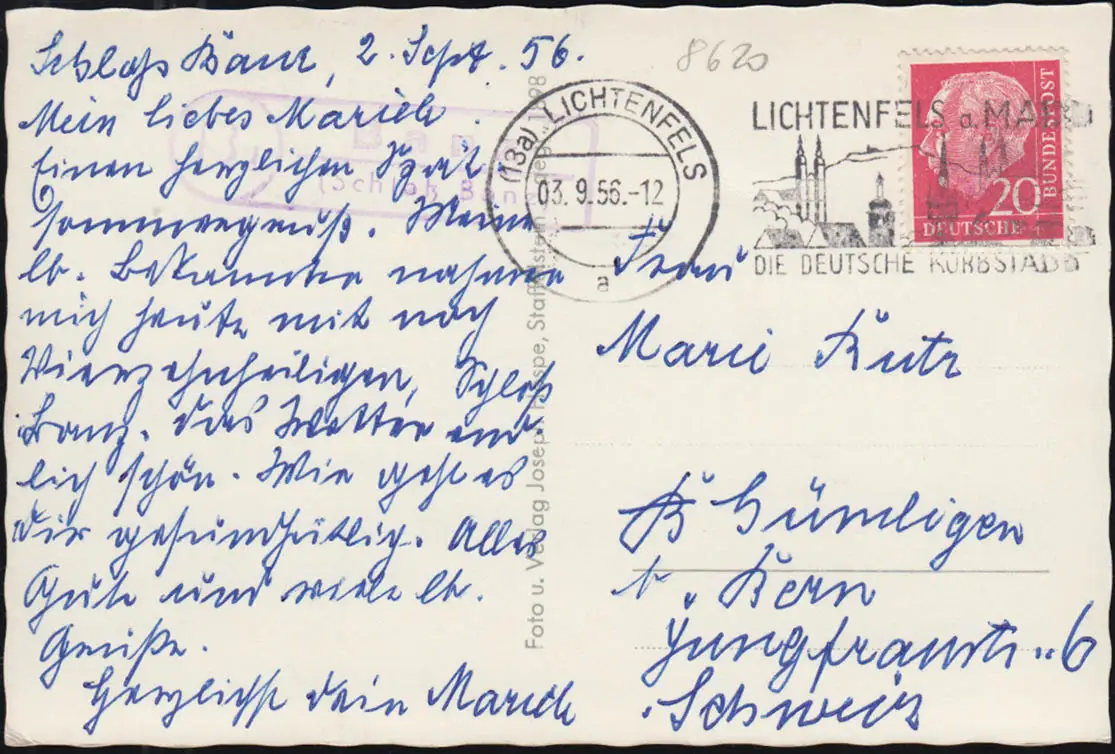 Schloß Banz, 2. Sept. 56.
Mein liebes Mariele.
Einen herzlichen Spät-
sommergruß. Meine
lb. Bekannten nahmen
mich heute mit nach
Vierzehnheiligen, Schloß
Banz. Das Wetter end-
lich schön. Wie geht es
Dir gesundheitlich. Alles
Gute und viele lb.
Grüße.
Herzlichst dein Mariele
Foto u. Verlag Joseph Hospe, Staffelstein
(Schloß Banz
8620
(13a) LICHTENFELS
03. 9.56.-12
a
LICHTENFELS a. MAIN
DIE DEUTSCHE KORBSTADT
20
DEUTSCHE
BUNDESPOST
Frau
Marie Kutz
Gümligen
b. Bern
Jungfraustr. 6
Schweiz